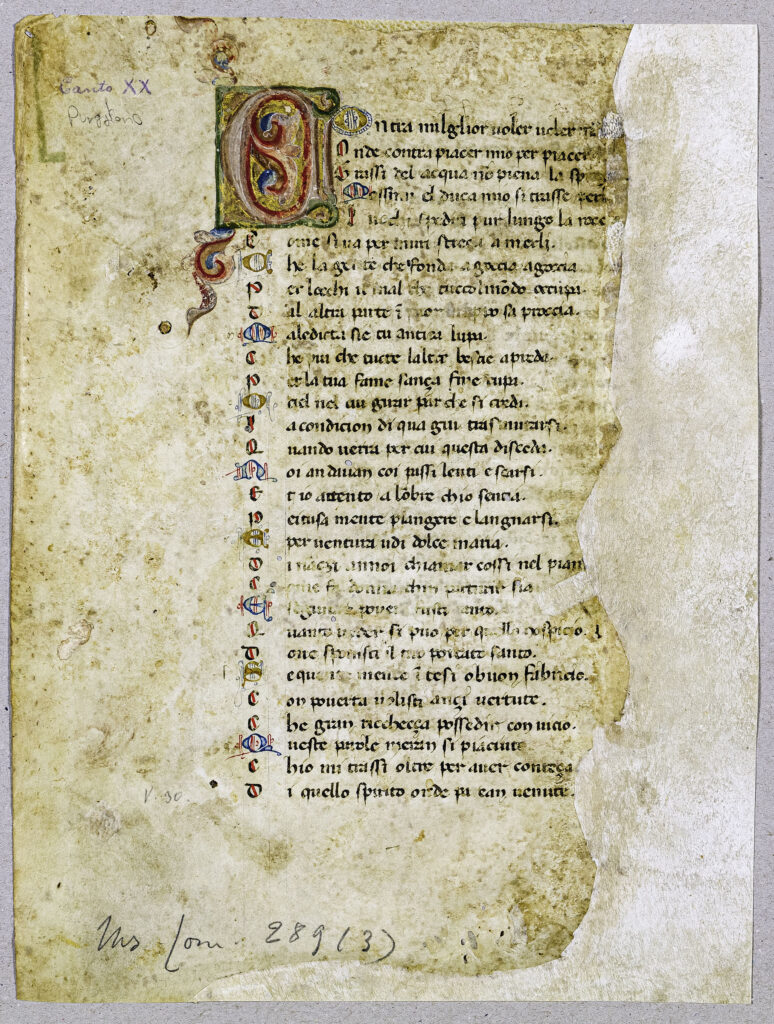 Canto XX
Purgatorio
COntra milglior uoler uoler
Onde contra piacer mio per piacer
Trassi del acqua nō piena la sp
Mossimi el duca mio si trasse per
I uochi spediti pur lungo la roce
Come si ua per muri streça a merli.
Che la gente che fonda a goccia agoccia
Per lochi il mal che tuccol mōdo occupa.
Dal altra parte ī fuor troppo sa proccia.
Maledicta sie tu antica lupa.
Che piu che tucte laltre bestie a preda.
Per la tua fame sança fine cupa.
O ciel nel cui girar par che si credi.
La condicion di qua giu trasmutarsi.
Quando uerra per cui questa disceda.
Noi andauan coi passi lenti e scarsi.
Et io attento a lōbre chio sentia.
Pietosa mente piangere e langnarsi.
E per uentura udi dolce maria.
Dinançi annoi chiamar cossi nel pian
Come fa donna chin parturir sia
E seguir pouer fusti tanto.
Quanto ueder si puo per quello hospicio.
Doue sponisti il tuo portato santo.
Sequente mente ītesi o buon fabricio.
Con pouerta uolisti ançi uertute.
Che gran ricchecça posseder con uicio.
Queste parole meran si piaciute.
Chio mi trassi oltre per auer conteça
Di quello spirito onde pa ean uenute.
V. 30.
Ms Lom. 289 (3)